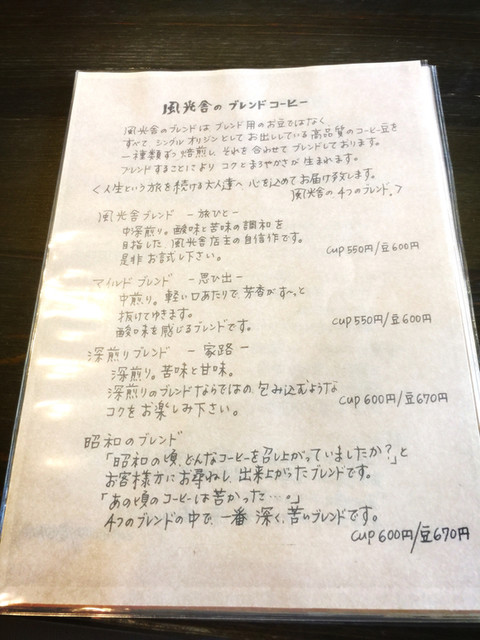 風光舎の ブレンドコーヒー
風光舎のブレンドは ブレンド用のお豆ではなく
すべて シングルオリジンとして お出ししている 高品質のコーヒー豆を
一種類ずつ 焙煎し、それを合わせて ブレンドしております。
ブレンドすることにより コクとまろやかさが 生まれます。
〈人生という旅を続ける大人達へ 心を込めてお届け致します。
風光舎の 4つのブレンド。〉
風光舎ブレンド －旅びと－
中深煎り。酸味と苦味の調和を
目指した、風光舎店主の自信作です。
是非 お試し下さい。
cup 550円/豆600円
マイルドブレンド －思ひ出－
中煎り。軽い口あたりで 芳香がすーっと
抜けてゆきます。
酸味を感じるブレンドです。
cup 550円/豆600円
深煎りブレンド －家路－
深煎り。苦味と甘味。
深煎りのブレンドならではの、包み込むような
コクをお楽しみ下さい。
cup 600円/豆670円
昭和のブレンド
「昭和の頃、どんなコーヒーを召し上がっていましたか?」と
お客様方にお尋ねし、出来上がったブレンドです。
「あの頃のコーヒーは苦かった…。」
4つのブレンドの中で、一番 深く、苦いブレンドです。
cup 600円/豆670円